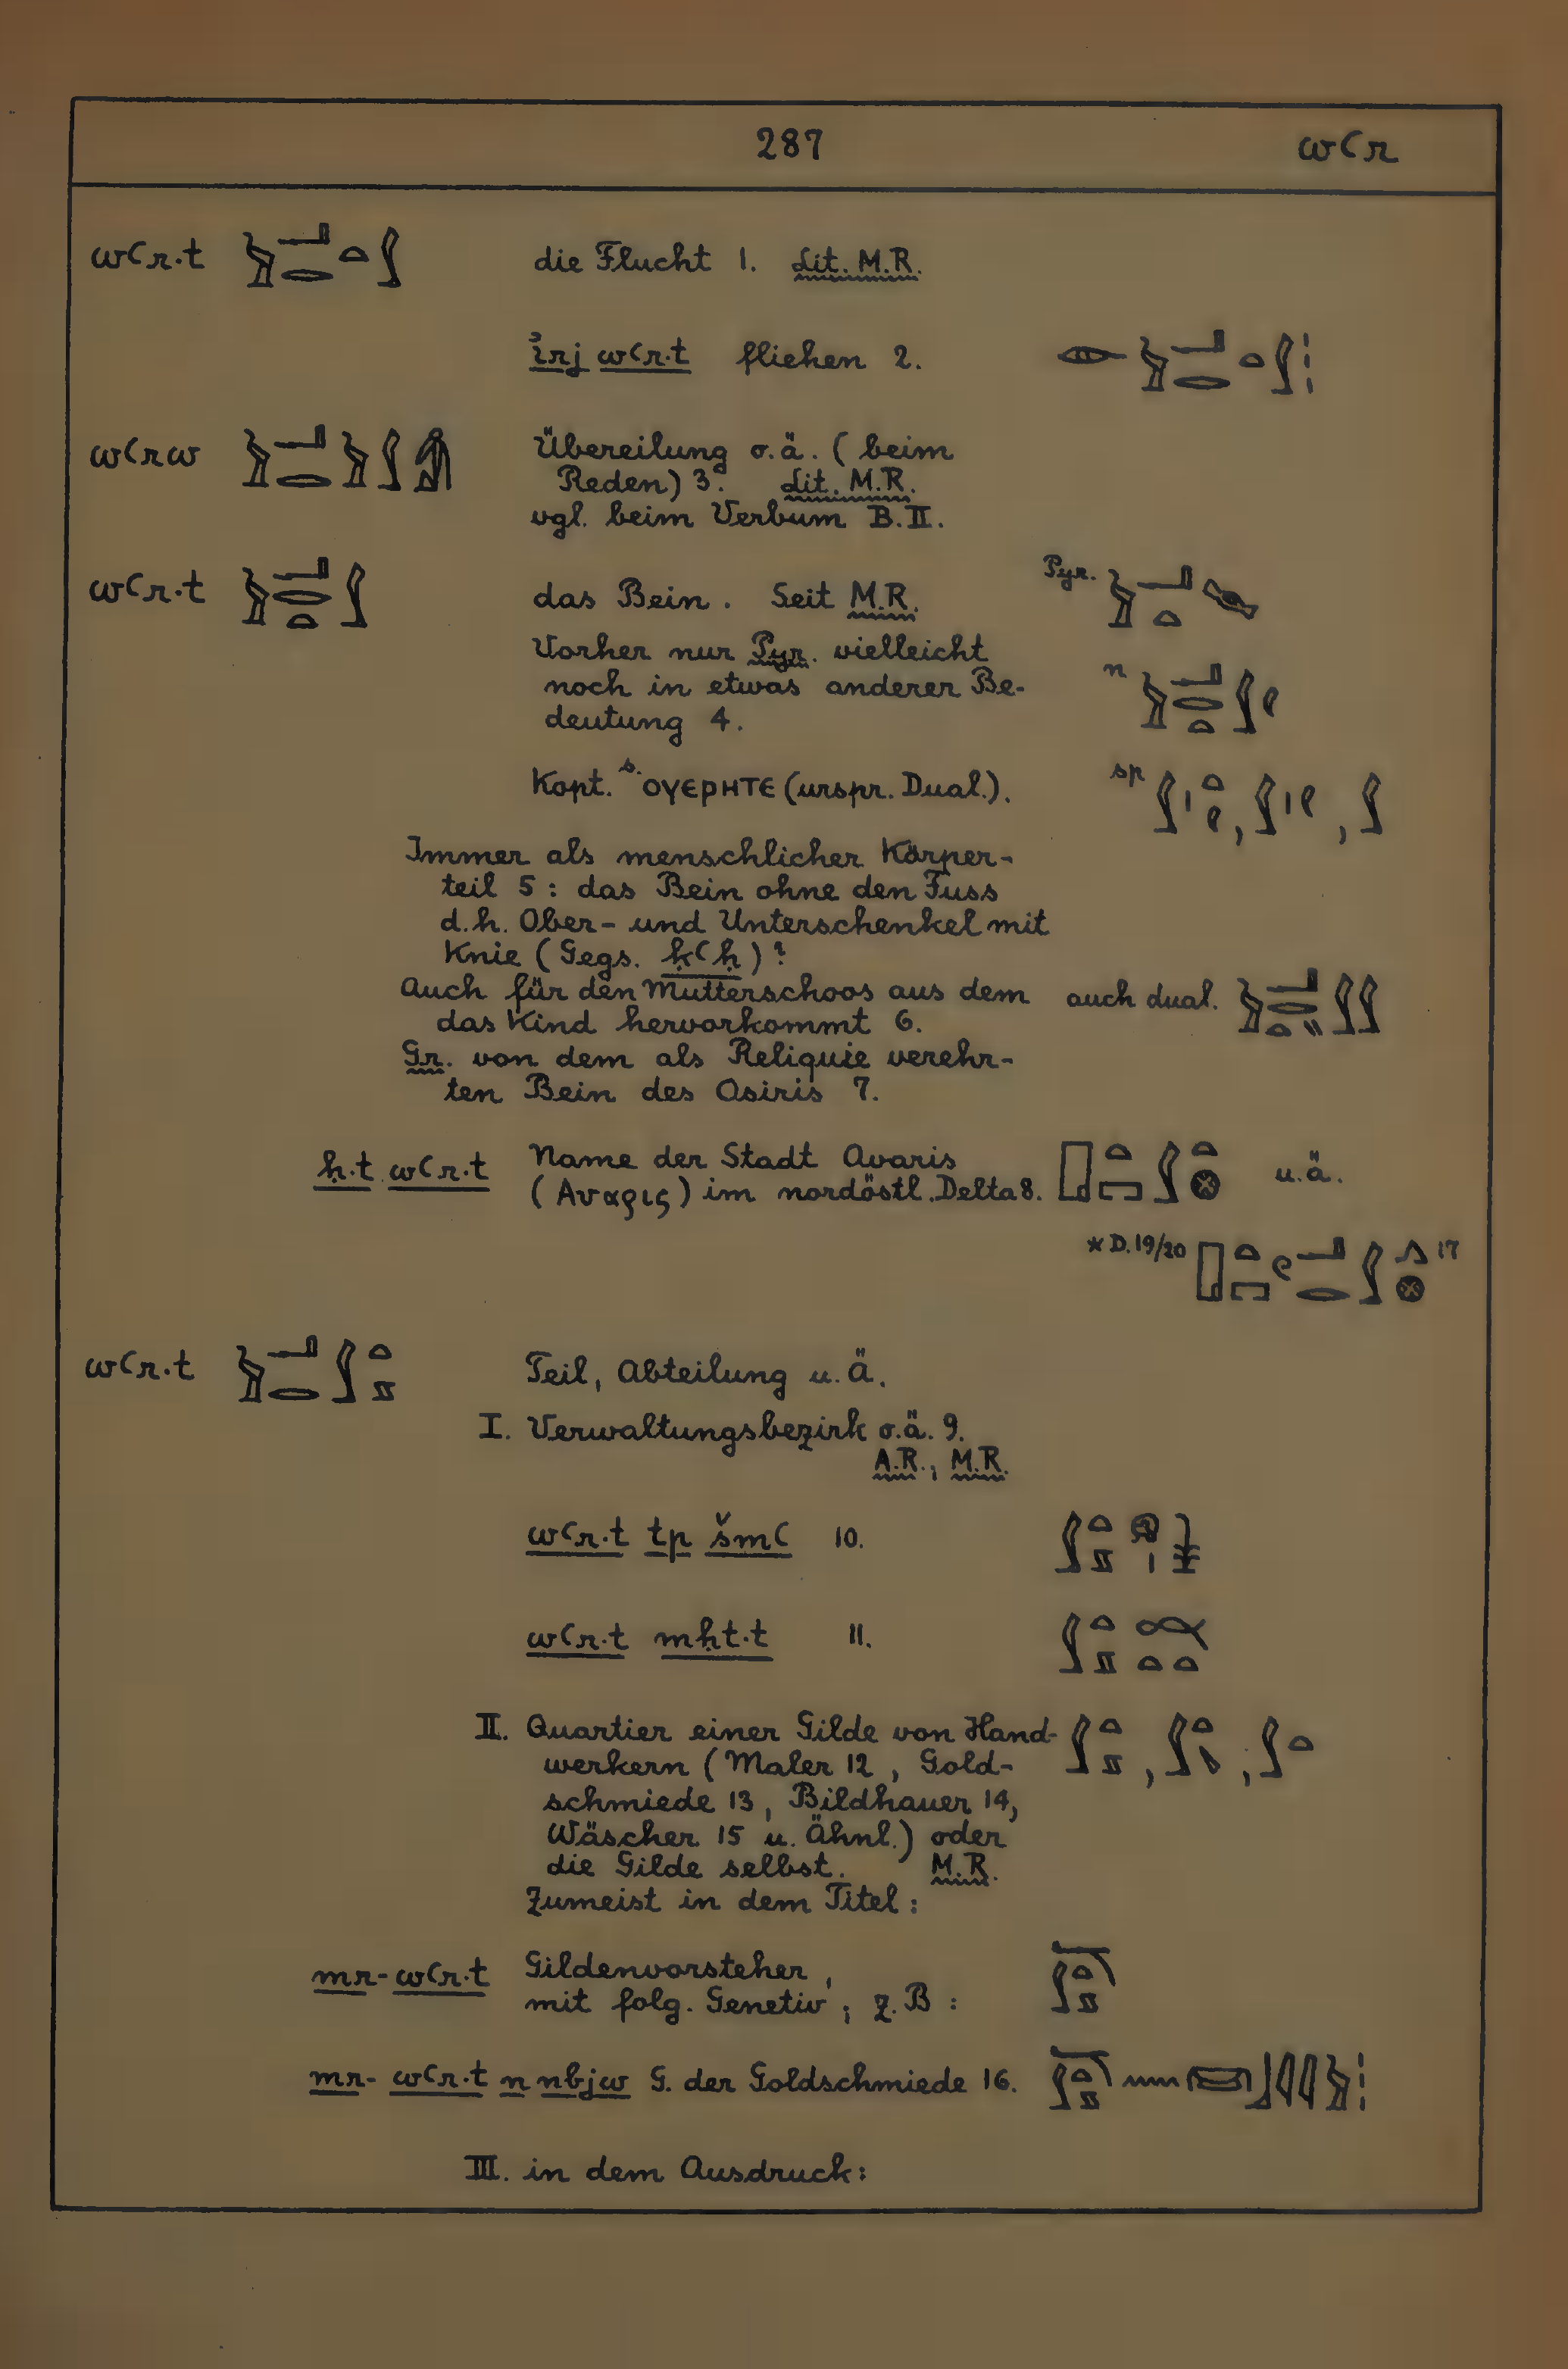 287 wꜥr
wꜥr.t die Flucht 1. Lit. M.R.
i͗rj wꜥr.t fliehen 2.
wꜥrw Übereilung o.ä. (beim
Reden) 3. Lit. M.R.
vgl. beim Verbum B.II.
wꜥr.t das Bein. Seit M.R. Pyr.
Vorher nur Pyr. vielleicht
noch in etwas anderer Be- n
deutung 4.
Kopt. s. ⲟⲩⲉⲣⲏⲧⲉ (urspr. Dual.). sp
Immer als menschlicher Körper-
teil 5 : das Bein ohne den Fuss
d.h. Ober- und Unterschenkel mit
Knie (Gegs. ḳꜥḥ)?
Auch für den Mutterschoos aus dem auch dual.
das Kind hervorkommt 6.
Gr. von dem als Reliquie verehr-
ten Bein des Osiris 7.
ḥ.t wꜥr.t Name der Stadt Avaris
(Αυαρις) im nordöstl. Delta 8. u.ä.
*D.19/20 17
wꜥr.t Teil, Abteilung u. Ä.
I. Verwaltungsbezirk o.ä. 9.
A.R., M.R.
wꜥr.t tp šmꜥ 10.
wꜥr.t mḥt.t 11.
II. Quartier einer Gilde von Hand-
werkern (Maler 12, Gold-
schmiede 13, Bildhauer 14,
Wäscher 15 u. Ähnl.) oder
die Gilde selbst. M.R.
Zumeist in dem Titel :
mr-wꜥr.t Gildenvorsteher,
mit folg. Genetiv; z.B :
mr-wꜥr.t n nbjw G. der Goldschmiede 16.
III. in dem Ausdruck: